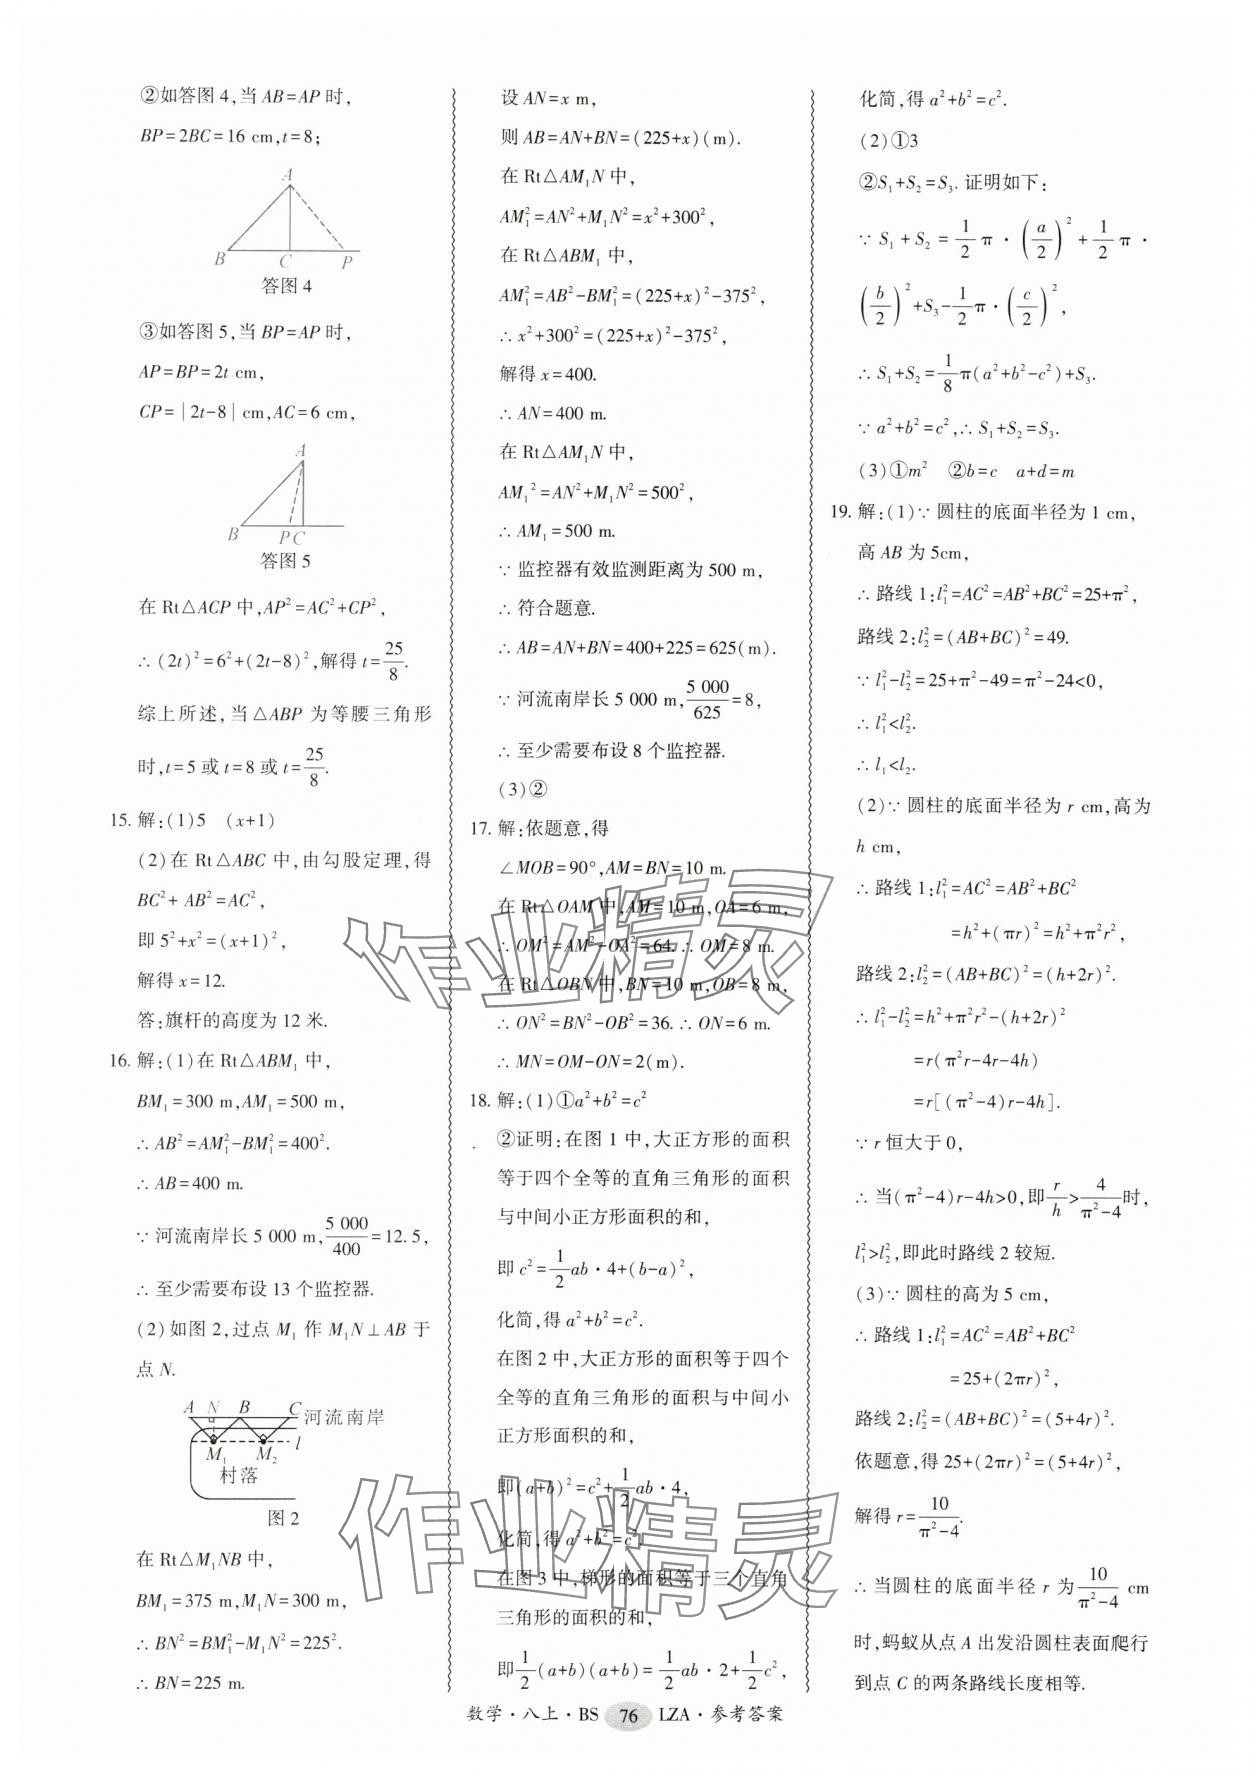 ②如答图4,当AB=AP时,
BP=2BC=16 cm,t=8;
A
B C P
答图4
③如答图5,当BP=AP时,
AP=BP=2t cm,
CP=|2t-8|cm,AC=6 cm,
A
B P C
答图5
在Rt△ACP中,AP²=AC²+CP²,
∴(2t)²=6²+(2t-8)²,解得t=25/8.
综上所述,当△ABP为等腰三角形
时,t=5或t=8或t=25/8.
15. 解:(1)5 (x+1)
(2)在Rt△ABC中,由勾股定理,得
BC²+AB²=AC²,
即5²+x²=(x+1)²,
解得x=12.
答:旗杆的高度为12米.
16. 解:(1)在Rt△ABM₁中,
BM₁=300 m,AM₁=500 m,
∴AB²=AM₁²-BM₁²=400².
∴AB=400 m.
∵河流南岸长5 000 m,5 000/400=12.5,
∴至少需要布设13个监控器.
(2)如图2,过点M₁作M₁N⊥AB于
点N.
A N B C 河流南岸
l
M₁ M₂
村落
图2
在Rt△M₁NB中,
BM₁=375 m,M₁N=300 m,
∴BN²=BM₁²-M₁N²=225².
∴BN=225 m.
设AN=x m,
则AB=AN+BN=(225+x)(m).
在Rt△AM₁N中,
AM₁²=AN²+M₁N²=x²+300²,
在Rt△ABM₁中,
AM₁²=AB²-BM₁²=(225+x)²-375²,
∴x²+300²=(225+x)²-375²,
解得x=400.
∴AN=400 m.
在Rt△AM₁N中,
AM₁²=AN²+M₁N²=500²,
∴AM₁=500 m.
∵监控器有效监测距离为500 m,
∴符合题意.
∴AB=AN+BN=400+225=625(m).
∵河流南岸长5 000 m,5 000/625=8,
∴至少需要布设8个监控器.
(3)②
17. 解:依题意,得
∠MOB=90°,AM=BN=10 m.
在Rt△OAM中,AM=10 m,OA=6 m,
∴OM²=AM²-OA²=64.∴OM=8 m.
在Rt△OBN中,BN=10 m,OB=8 m,
∴ON²=BN²-OB²=36.∴ON=6 m.
∴MN=OM-ON=2(m).
18. 解:(1)①a²+b²=c²
②证明:在图1中,大正方形的面积
等于四个全等的直角三角形的面积
与中间小正方形面积的和,
即c²=1/2ab·4+(b-a)²,
化简,得a²+b²=c².
在图2中,大正方形的面积等于四个
全等的直角三角形的面积与中间小
正方形面积的和,
即(a+b)²=c²+1/2ab·4,
化简,得a²+b²=c².
在图3中,梯形的面积等于三个直角
三角形的面积的和,
即1/2(a+b)(a+b)=1/2ab·2+1/2c²,
化简,得a²+b²=c².
(2)①3
②S₁+S₂=S₃.证明如下:
∵S₁+S₂=1/2π·(a/2)²+1/2π·
(b/2)²+S₃-1/2π·(c/2)²,
∴S₁+S₂=1/8π(a²+b²-c²)+S₃.
∵a²+b²=c²,∴S₁+S₂=S₃.
(3)①m² ②b=c a+d=m
19. 解:(1)∵圆柱的底面半径为1 cm,
高AB为5cm,
∴路线1:l₁²=AC²=AB²+BC²=25+π²,
路线2:l₂²=(AB+BC)²=49.
∵l₁²-l₂²=25+π²-49=π²-24<0,
∴l₁²<l₂².
∴l₁<l₂.
(2)∵圆柱的底面半径为r cm,高为
h cm,
∴路线1:l₁²=AC²=AB²+BC²
=h²+(πr)²=h²+π²r²,
路线2:l₂²=(AB+BC)²=(h+2r)².
∴l₁²-l₂²=h²+π²r²-(h+2r)²
=r(π²r-4r-4h)
=r[(π²-4)r-4h].
∵r恒大于0,
∴当(π²-4)r-4h>0,即r/h>4/(π²-4)时,
l₁²>l₂²,即此时路线2较短.
(3)∵圆柱的高为5 cm,
∴路线1:l₁²=AC²=AB²+BC²
=25+(2πr)²,
路线2:l₂²=(AB+BC)²=(5+4r)².
依题意,得25+(2πr)²=(5+4r)²,
解得r=10/(π²-4).
∴当圆柱的底面半径r为10/(π²-4) cm
时,蚂蚁从点A出发沿圆柱表面爬行
到点C的两条路线长度相等.
数学·八上·BS 76 LZA·参考答案
作业精灵
作业精灵